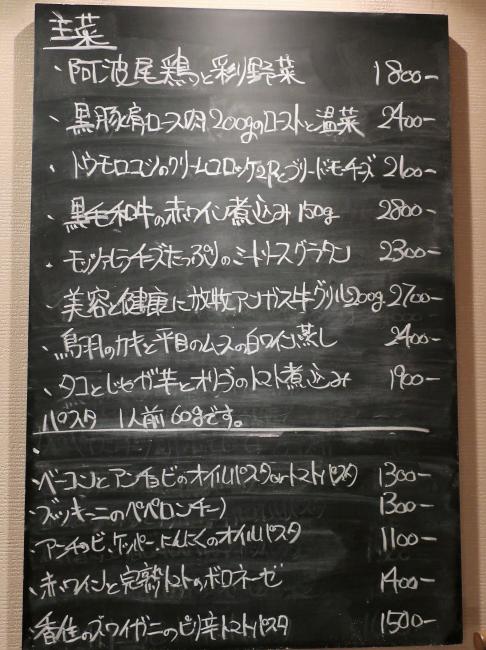 主菜
・阿波尾鶏と彩り野菜 1800-
・黒豚肩ロース肉200gのローストと温菜 2400-
・トウモロコシのクリームコロッケ2Pとブリードモーチーズ 2100-
・黒毛和牛の赤ワイン煮込み150g 2800-
・モッツァレラチーズたっぷりのミートソースグラタン 2300-
・美容と健康に放牧アンガス牛グリル200g 2700-
・鳥羽のカキと平目のムースの白ワイン蒸し 2400-
・タコとじゃが芋とオリーブのトマト煮込み 1900-
パスタ 1人前60gです。
・ベーコンとアンチョビのオイルパスタorトマトパスタ 1300-
・ズッキーニのペペロンチーノ 1300-
・アンチョビ、ケッパー、にんにくのオイルパスタ 1100-
・赤ワインと完熟トマトのボロネーゼ 1400-
・香住のズワイガニのピリ辛トマトパスタ 1500-